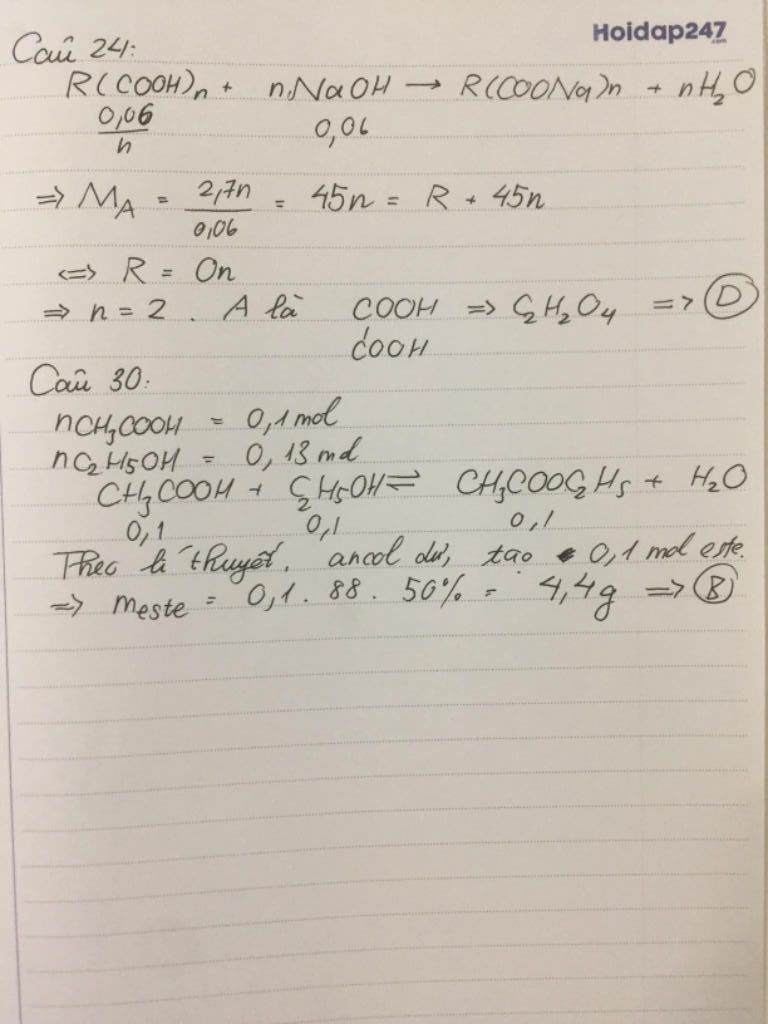 Hoidap247
.com
Câu 24:
R(COOH)n + nNaOH → R(COONa)n + nH₂O
0,06/n 0,06
=> M_A = 2,7n/0,06 = 45n = R + 45n
<=> R = 0n
=> n = 2 . A là COOH => C₂H₂O₄ => D
COOH
Câu 30:
nCH₃COOH = 0,1 mol
nC₂H₅OH = 0,13 mol
CH₃COOH + C₂H₅OH ⇌ CH₃COOC₂H₅ + H₂O
0,1 0,1 0,1
Theo lí thuyết, ancol dư, tạo 0,1 mol este.
=> meste = 0,1 . 88 . 50% = 4,4g => B